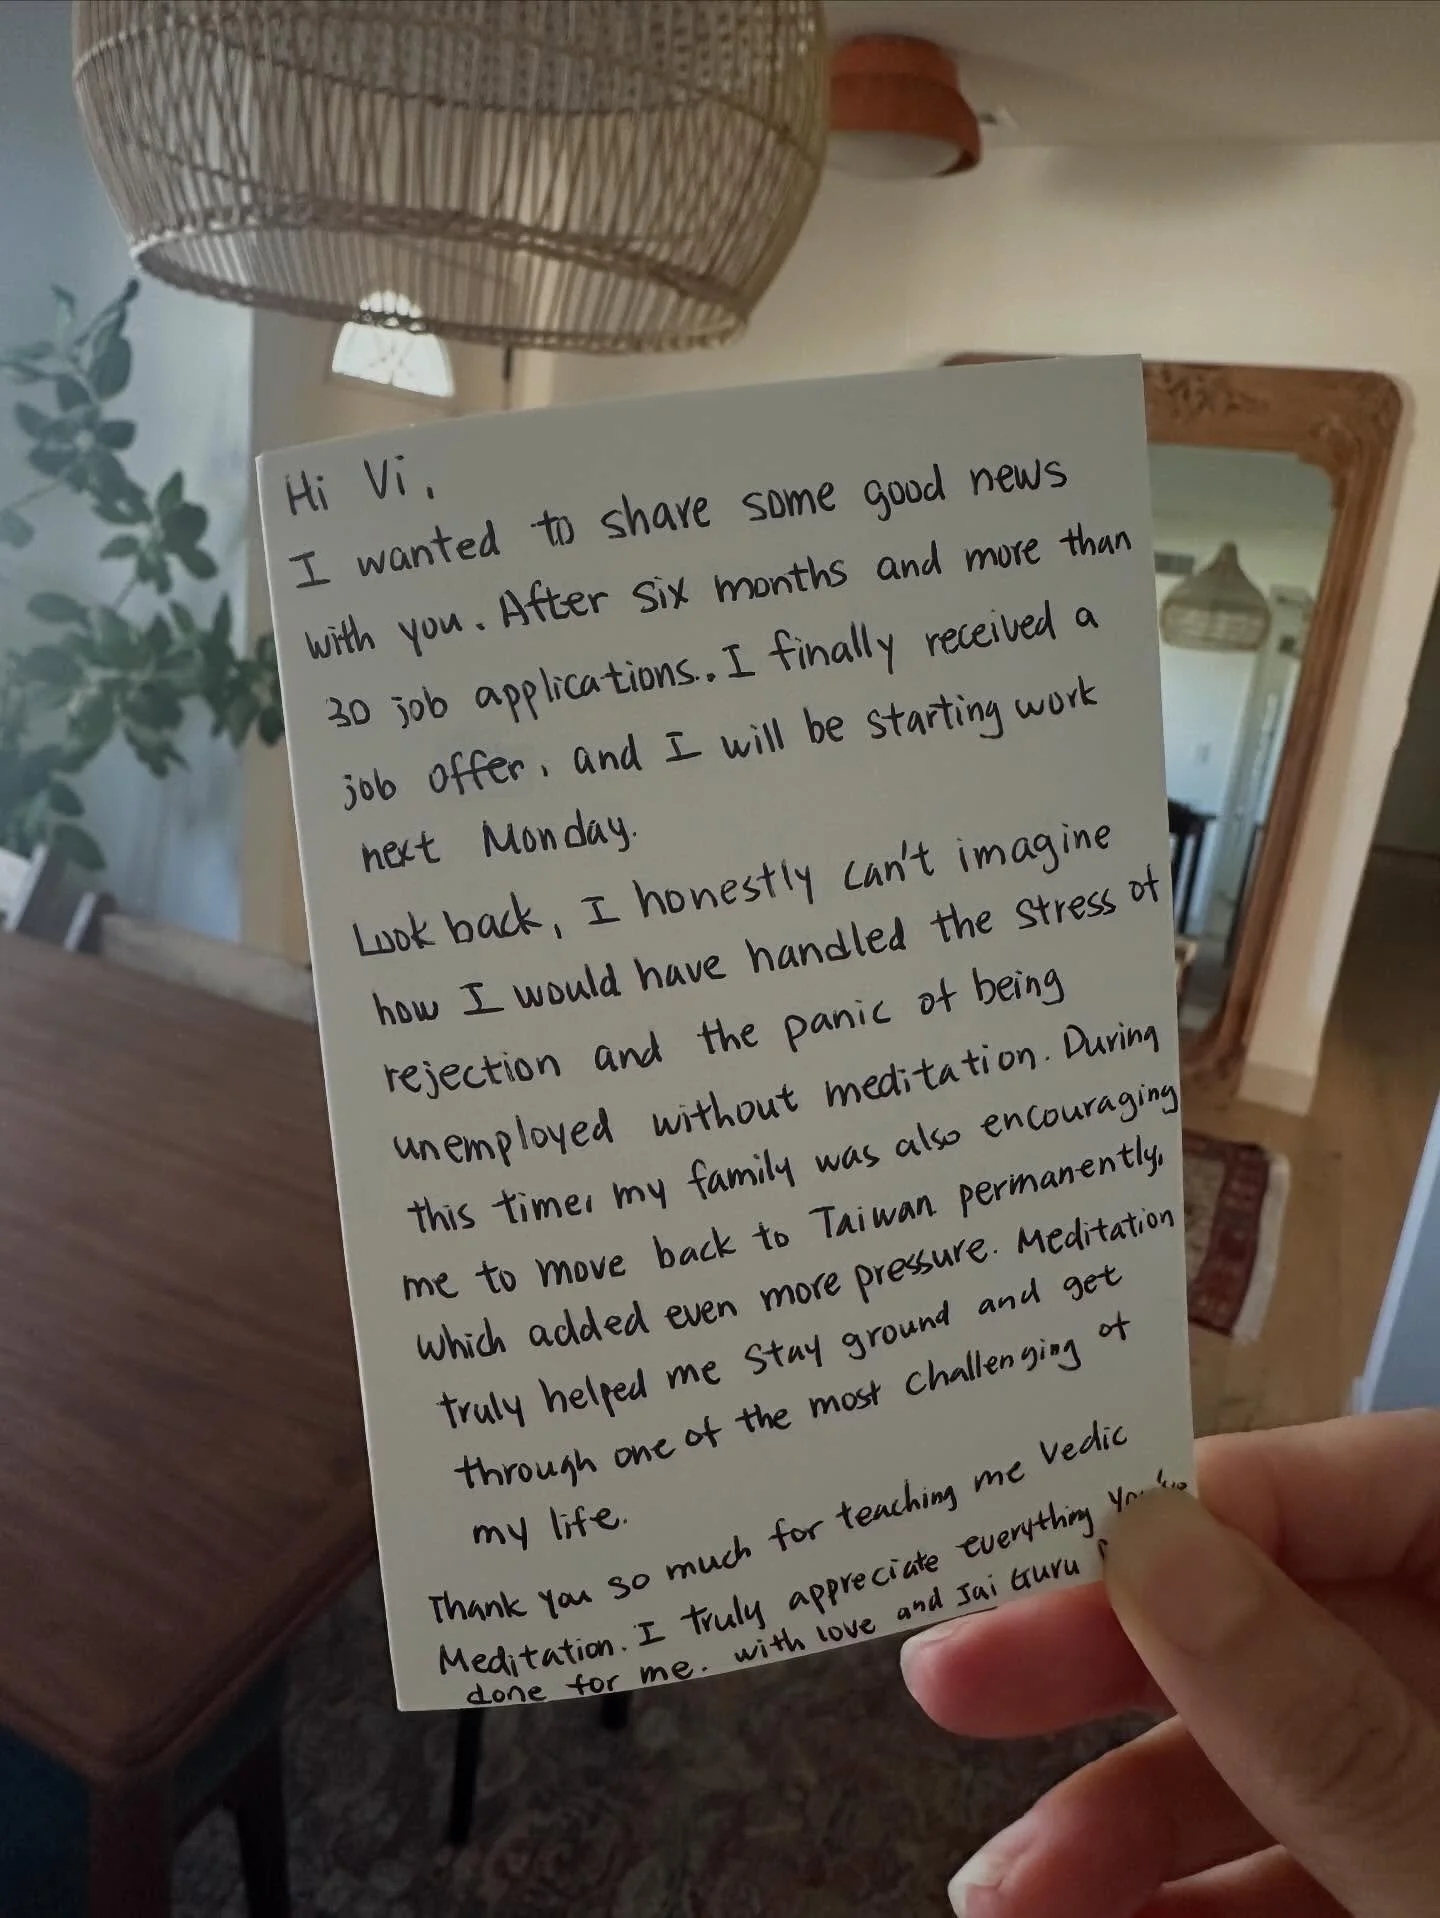 Hi Vi,
I wanted to share some good news
with you. After six months and more than
30 job applications.. I finally received a
job offer, and I will be starting work
next Monday.
Look back, I honestly can't imagine
how I would have handled the stress of
rejection and the panic of being
unemployed without meditation. During
this time, my family was also encouraging
me to move back to Taiwan permanently,
which added even more pressure. Meditation
truly helped me stay ground and get
through one of the most challenging of
my life.
Thank you so much for teaching me Vedic
Meditation. I truly appreciate everything
done for me. with love and Jai Guru